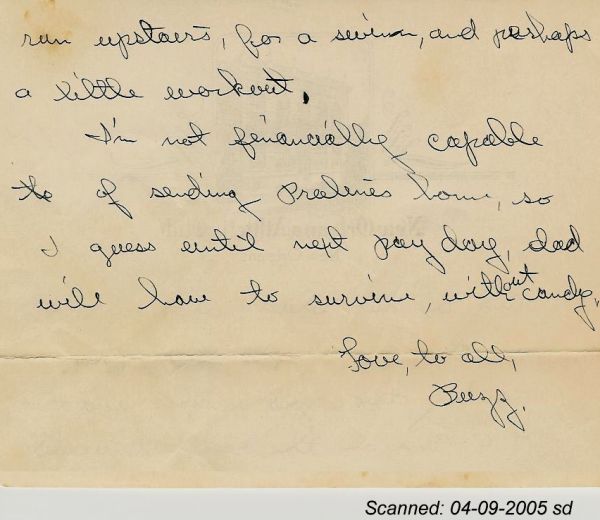 run upstairs, for a swim, and perhaps
a little workout.
I'm not financially capable
of sending Pralines home, so
I guess until next pay day, dad
will have to survive, without candy.
Love, to all,
Buzz.
Scanned: 04-09-2005 sd